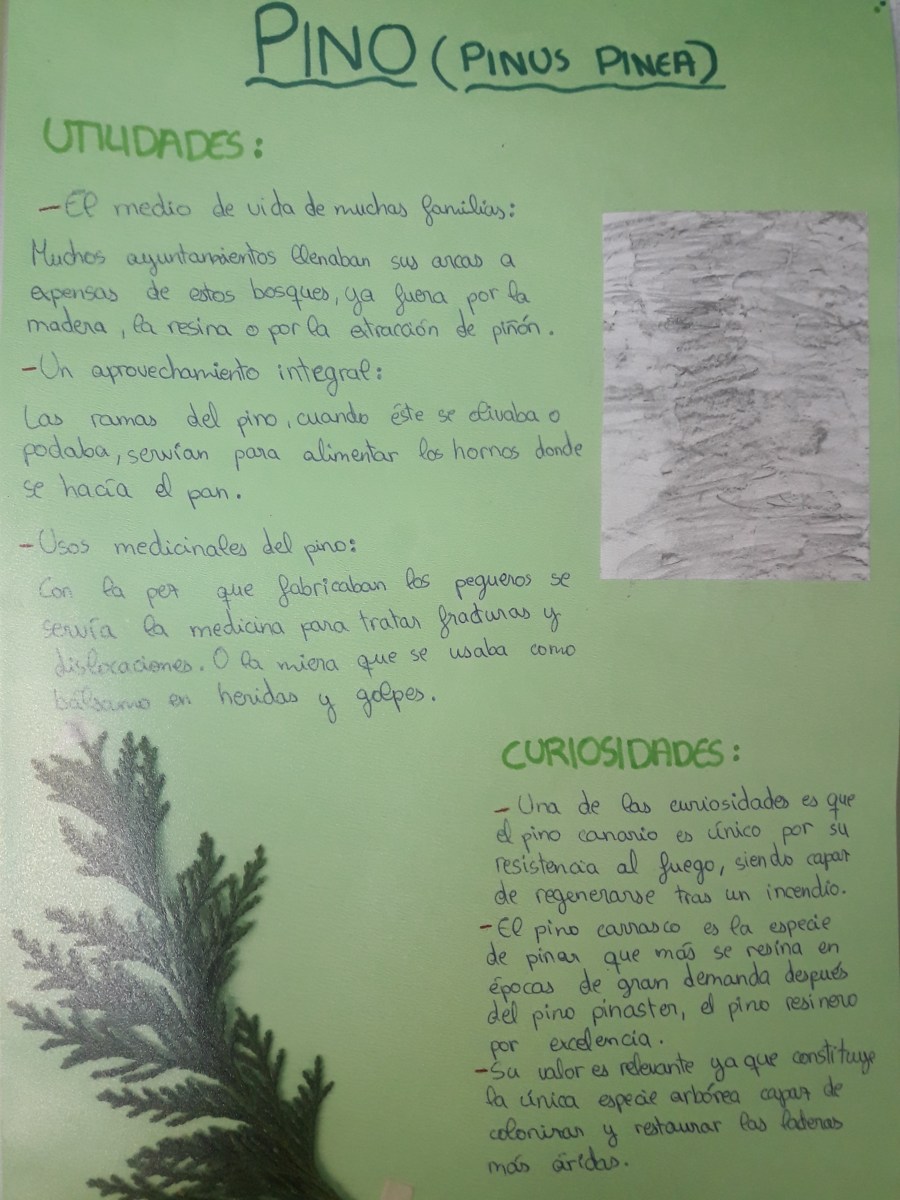 PINO (PINUS PINEA)
UTILIDADES:
- El medio de vida de muchas familias:
Muchos ayuntamientos llenaban sus arcas a
expensas de estos bosques, ya fuera por la
madera, la resina o por la etracción de piñón.
- Un aprovechamiento integral:
Las ramas del pino, cuando éste se olivaba o
podaba, servían para alimentar los hornos donde
se hacía el pan.
- Usos medicinales del pino:
Con la pez que fabricaban los pegueros se
servía la medicina para tratar fracturas y
dislocaciones. O la miera que se usaba como
bálsamo en heridas y golpes.
CURIOSIDADES:
- Una de las curiosidades es que
el pino canario es único por su
resistencia al fuego, siendo capaz
de regenerarse tras un incendio.
- El pino carrasco es la especie
de pinar que más se resina en
épocas de gran demanda después
del pino pinaster, el pino resinero
por excelencia.
- Su valor es relevante ya que constituye
la única especie arbórea capaz de
colonizar y restaurar las laderas
más áridas.